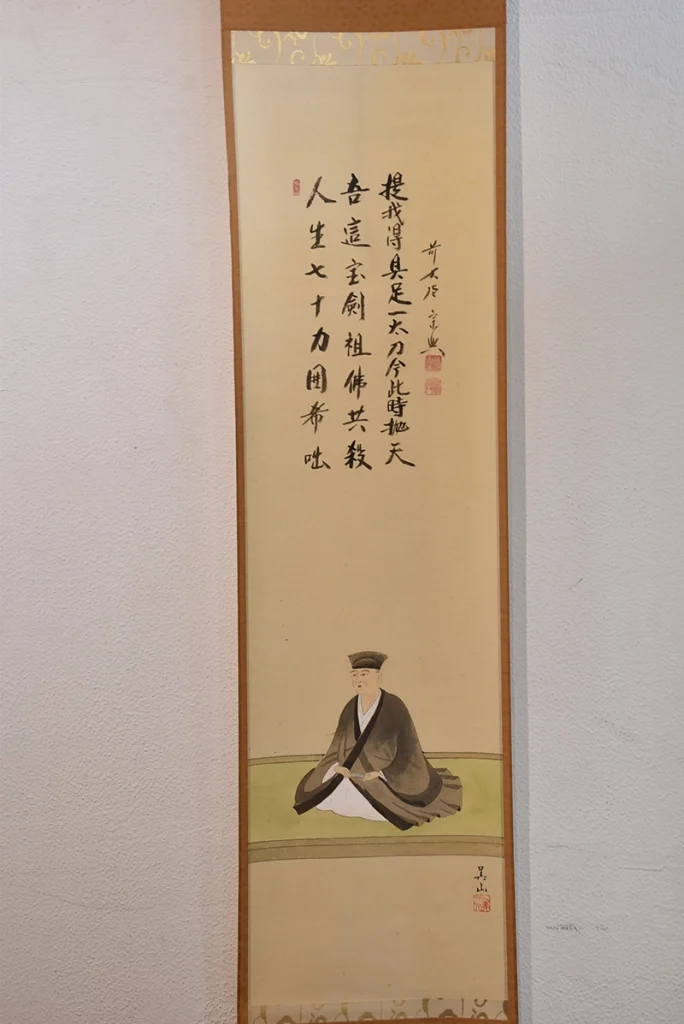 人生七十力囲希咄
吾這宝劍祖佛共殺
提我得具足一太刀今此時抛天
前大 宗
山